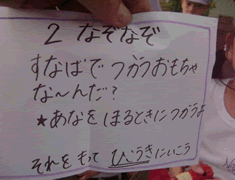 2 なぞなぞ
すなばで つかうおもちゃ
な〜んだ?
★あなを ほるときにつかうよ
それを もって ひこうきにいこう